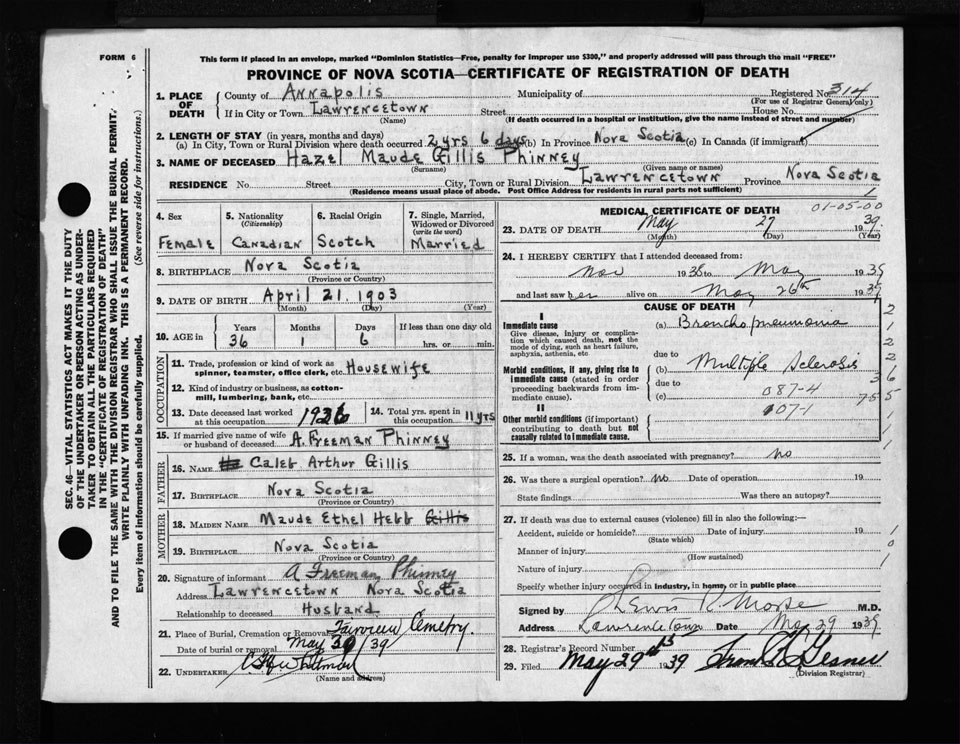 FORM 6
This form if placed in an envelope, marked "Dominion Statistics—Free, penalty for improper use $300," and properly addressed will pass through the mail "FREE"
PROVINCE OF NOVA SCOTIA—CERTIFICATE OF REGISTRATION OF DEATH
SEC. 46—VITAL STATISTICS ACT MAKES IT THE DUTY
OF THE UNDERTAKER OR PERSON ACTING AS UNDER-
TAKER TO OBTAIN ALL THE PARTICULARS REQUIRED
IN THE "CERTIFICATE OF REGISTRATION OF DEATH"
AND TO FILE THE SAME WITH THE DIVISION REGISTRAR WHO SHALL ISSUE THE BURIAL PERMIT.
WRITE PLAINLY WITH UNFADING INK. THIS IS A PERMANENT RECORD.
Every item of information should be carefully supplied. (See reverse side for instructions.)
1. PLACE OF DEATH
County of Annapolis Municipality of Registered No. 314
(For use of Registrar General only)
If in City or Town Lawrencetown Street House No.
(Name) (If death occurred in a hospital or institution, give the name instead of street and number)
2. LENGTH OF STAY (in years, months and days)
(a) In City, Town or Rural Division where death occurred 2 yrs 6 days (b) In Province Nova Scotia (c) In Canada (if immigrant)
3. NAME OF DECEASED Hazel Maude Gillis Phinney
(Surname) (Given name or names)
RESIDENCE No. Street City, Town or Rural Division Lawrencetown Province Nova Scotia
(Residence means usual place of abode. Post Office Address for residents in rural parts not sufficient)
4. Sex
Female
5. Nationality
(Citizenship)
Canadian
6. Racial Origin
Scotch
7. Single, Married, Widowed or Divorced
(write the word)
Married
8. BIRTHPLACE Nova Scotia
(Province or Country)
9. DATE OF BIRTH April 21. 1903
(Month) (Day) (Year)
10. AGE IN Years 36 Months 1 Days 6 If less than one day old hrs. or min.
OCCUPATION
11. Trade, profession or kind of work as
spinner, teamster, office clerk, etc. Housewife
12. Kind of industry or business, as cotton-
mill, lumbering, bank, etc.
13. Date deceased last worked
at this occupation 1936
14. Total yrs. spent in
this occupation 11 yrs
15. If married give name of wife
or husband of deceased A. Freeman Phinney
FATHER
16. NAME Caleb Arthur Gillis
17. BIRTHPLACE Nova Scotia
(Province or Country)
MOTHER
18. MAIDEN NAME Maude Ethel Hebb Gillis
19. BIRTHPLACE Nova Scotia
(Province or Country)
20. Signature of informant A Freeman Phinney
Address Lawrencetown Nova Scotia
Relationship to deceased Husband
21. Place of Burial, Cremation or Removal Fairview Cemetry.
Date of burial or removal May 30/39
22. UNDERTAKER
(Name and address)
MEDICAL CERTIFICATE OF DEATH 01-05-00
23. DATE OF DEATH May 27 1939
(Month) (Day) (Year)
24. I HEREBY CERTIFY that I attended deceased from:
Nov 1938 to May 1939
and last saw her alive on May 26th 1939
CAUSE OF DEATH
I
Immediate cause
Give disease, injury or complica-
tion which caused death, not the
mode of dying, such as heart failure,
asphyxia, asthenia, etc
(a) Broncho pneumonia
due to
Morbid conditions, if any, giving rise to
immediate cause (stated in order
proceeding backwards from im-
mediate cause).
(b) Multiple Sclerosis
due to
(c) 087-4
II
Other morbid conditions (if important)
contributing to death but not
causally related to immediate cause.
107-1
25. If a woman, was the death associated with pregnancy? no
26. Was there a surgical operation? no Date of operation 19
State findings Was there an autopsy?
27. If death was due to external causes (violence) fill in also the following:—
Accident, suicide or homicide? Date of injury 19
(State which)
Manner of injury
(How sustained)
Nature of injury
Specify whether injury occurred in industry, in home, or in public place
Signed by Lewis R. Morse M.D.
Address Lawrencetown Date May 29 1939
28. Registrar's Record Number
29. Filed May 29th 1939
(Division Registrar)